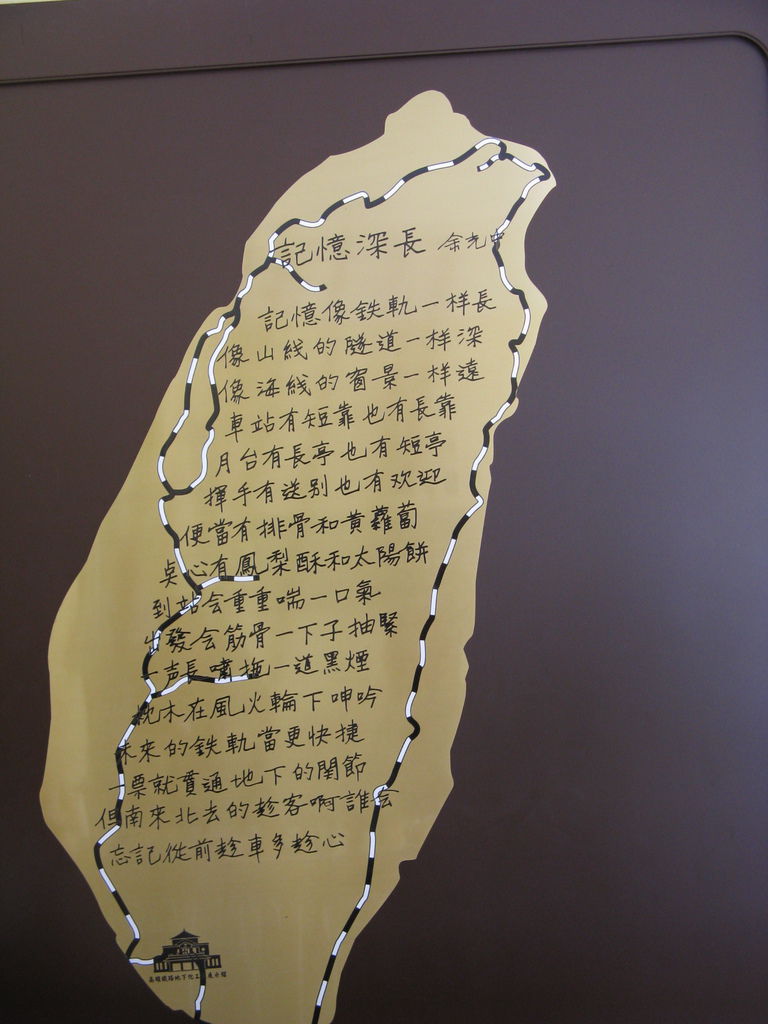 記憶深長 余光中
記憶像鉄軌一样長
像山线的隧道一样深
像海线的窗景一样遠
車站有短靠也有長靠
月台有長亭也有短亭
揮手有送别也有欢迎
便當有排骨和黄蘿蔔
点心有鳳梨酥和太陽餅
到站会重重喘一口氣
出發会筋骨一下子抽緊
一声長嘯拖一道黑煙
枕木在風火輪下呻吟
未來的鉄軌當更快捷
一票就貫通地下的関節
但南來北去的趁客啊誰会
忘記從前趁車多趁心
高雄鐵路地下化工程展示館